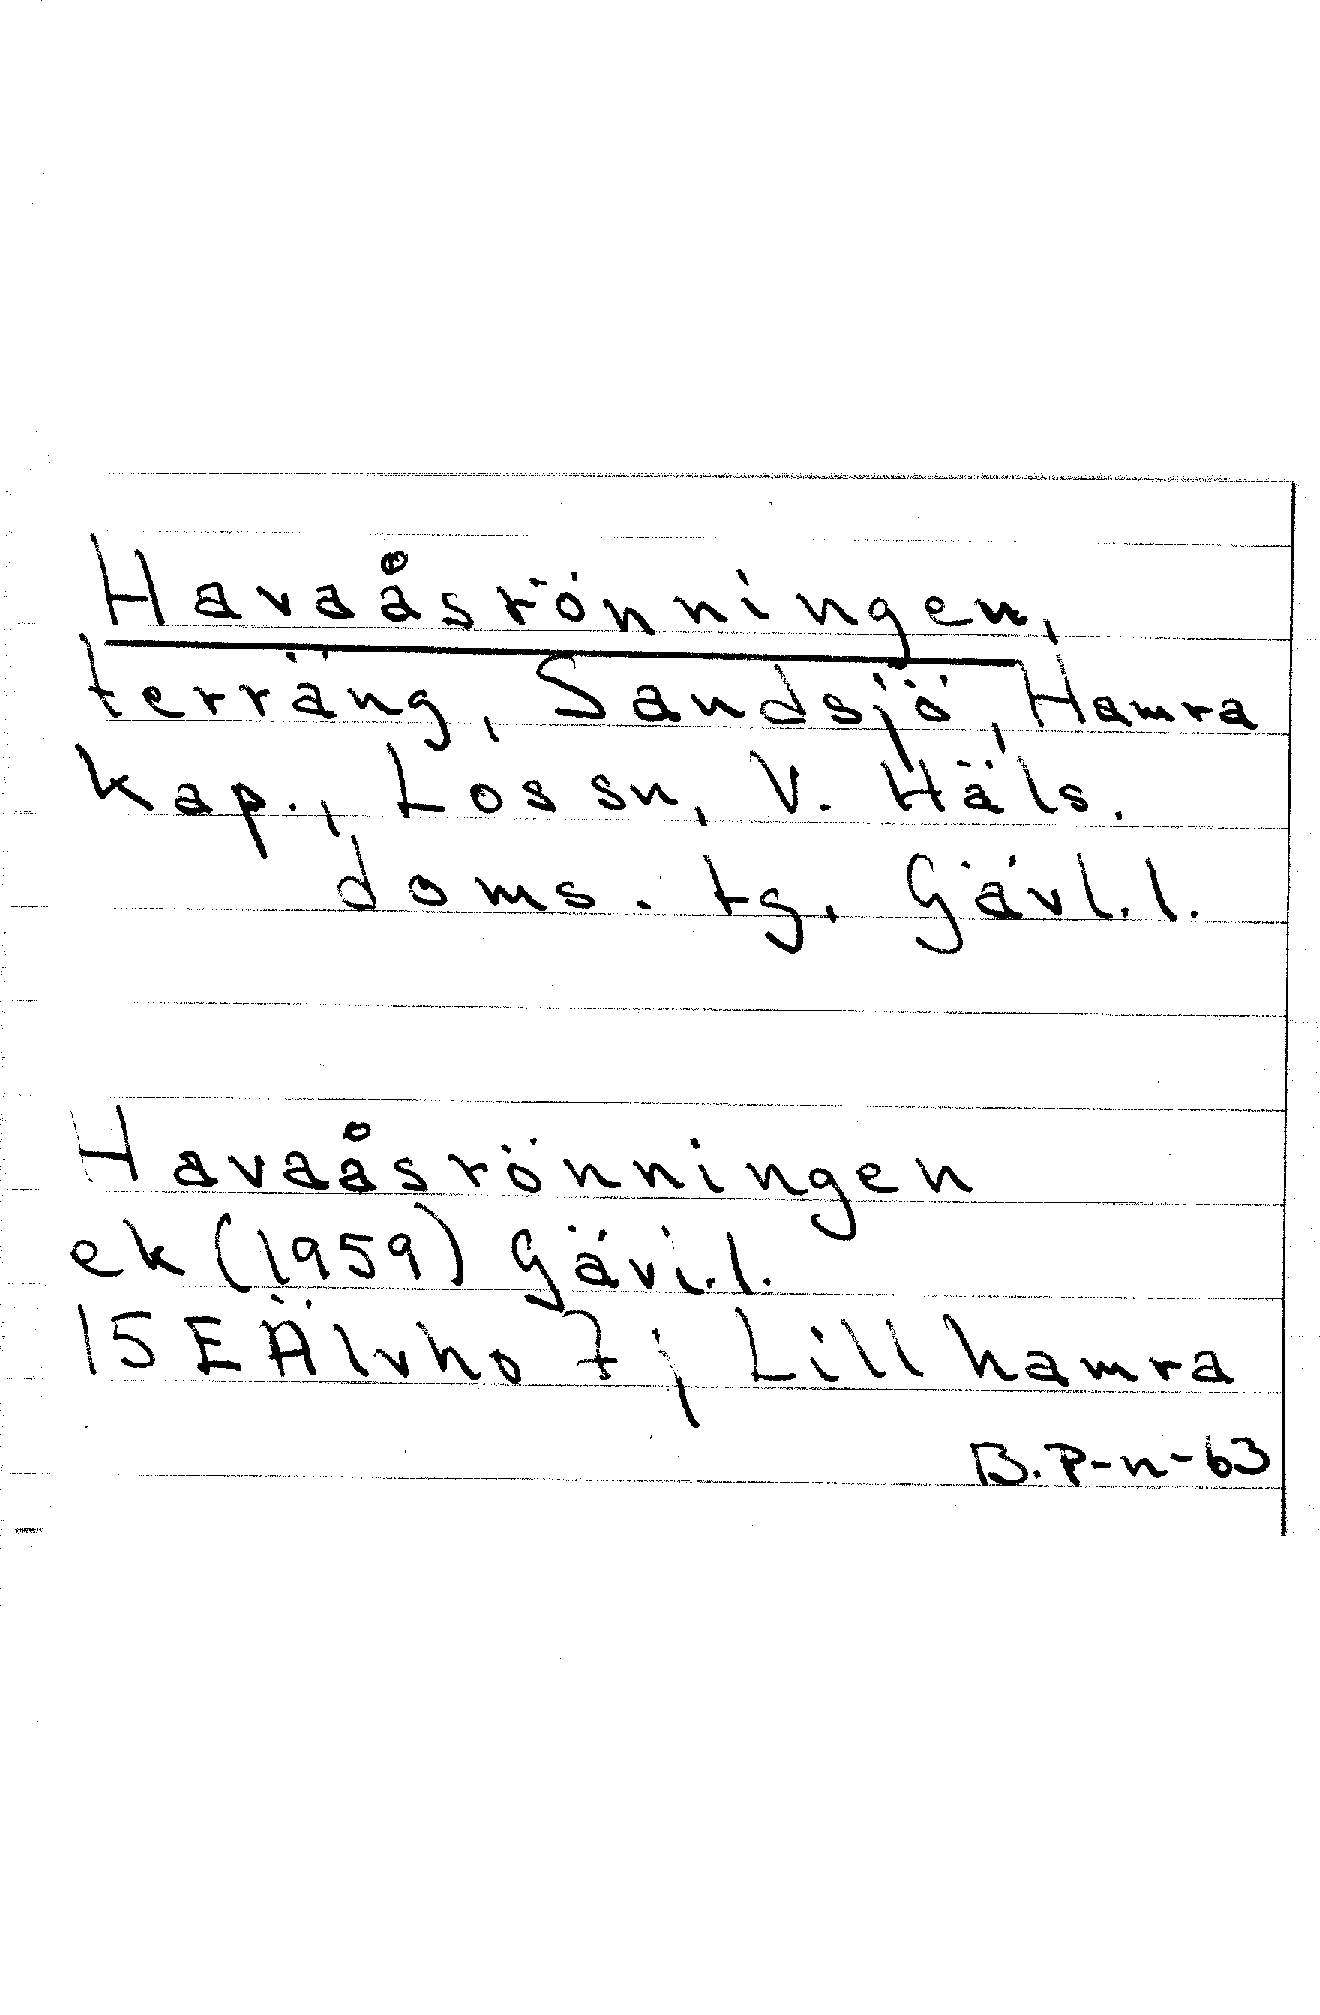 Havaåsrönningen,
terräng, Sandsjö, Hamra
kap., Los sn, V. Häls.
doms. tg, Gävl. l.
Havaåsrönningen
ek (1959) Gävl. l.
15 E Älvho 7; Lillhamra
B. P-n-63